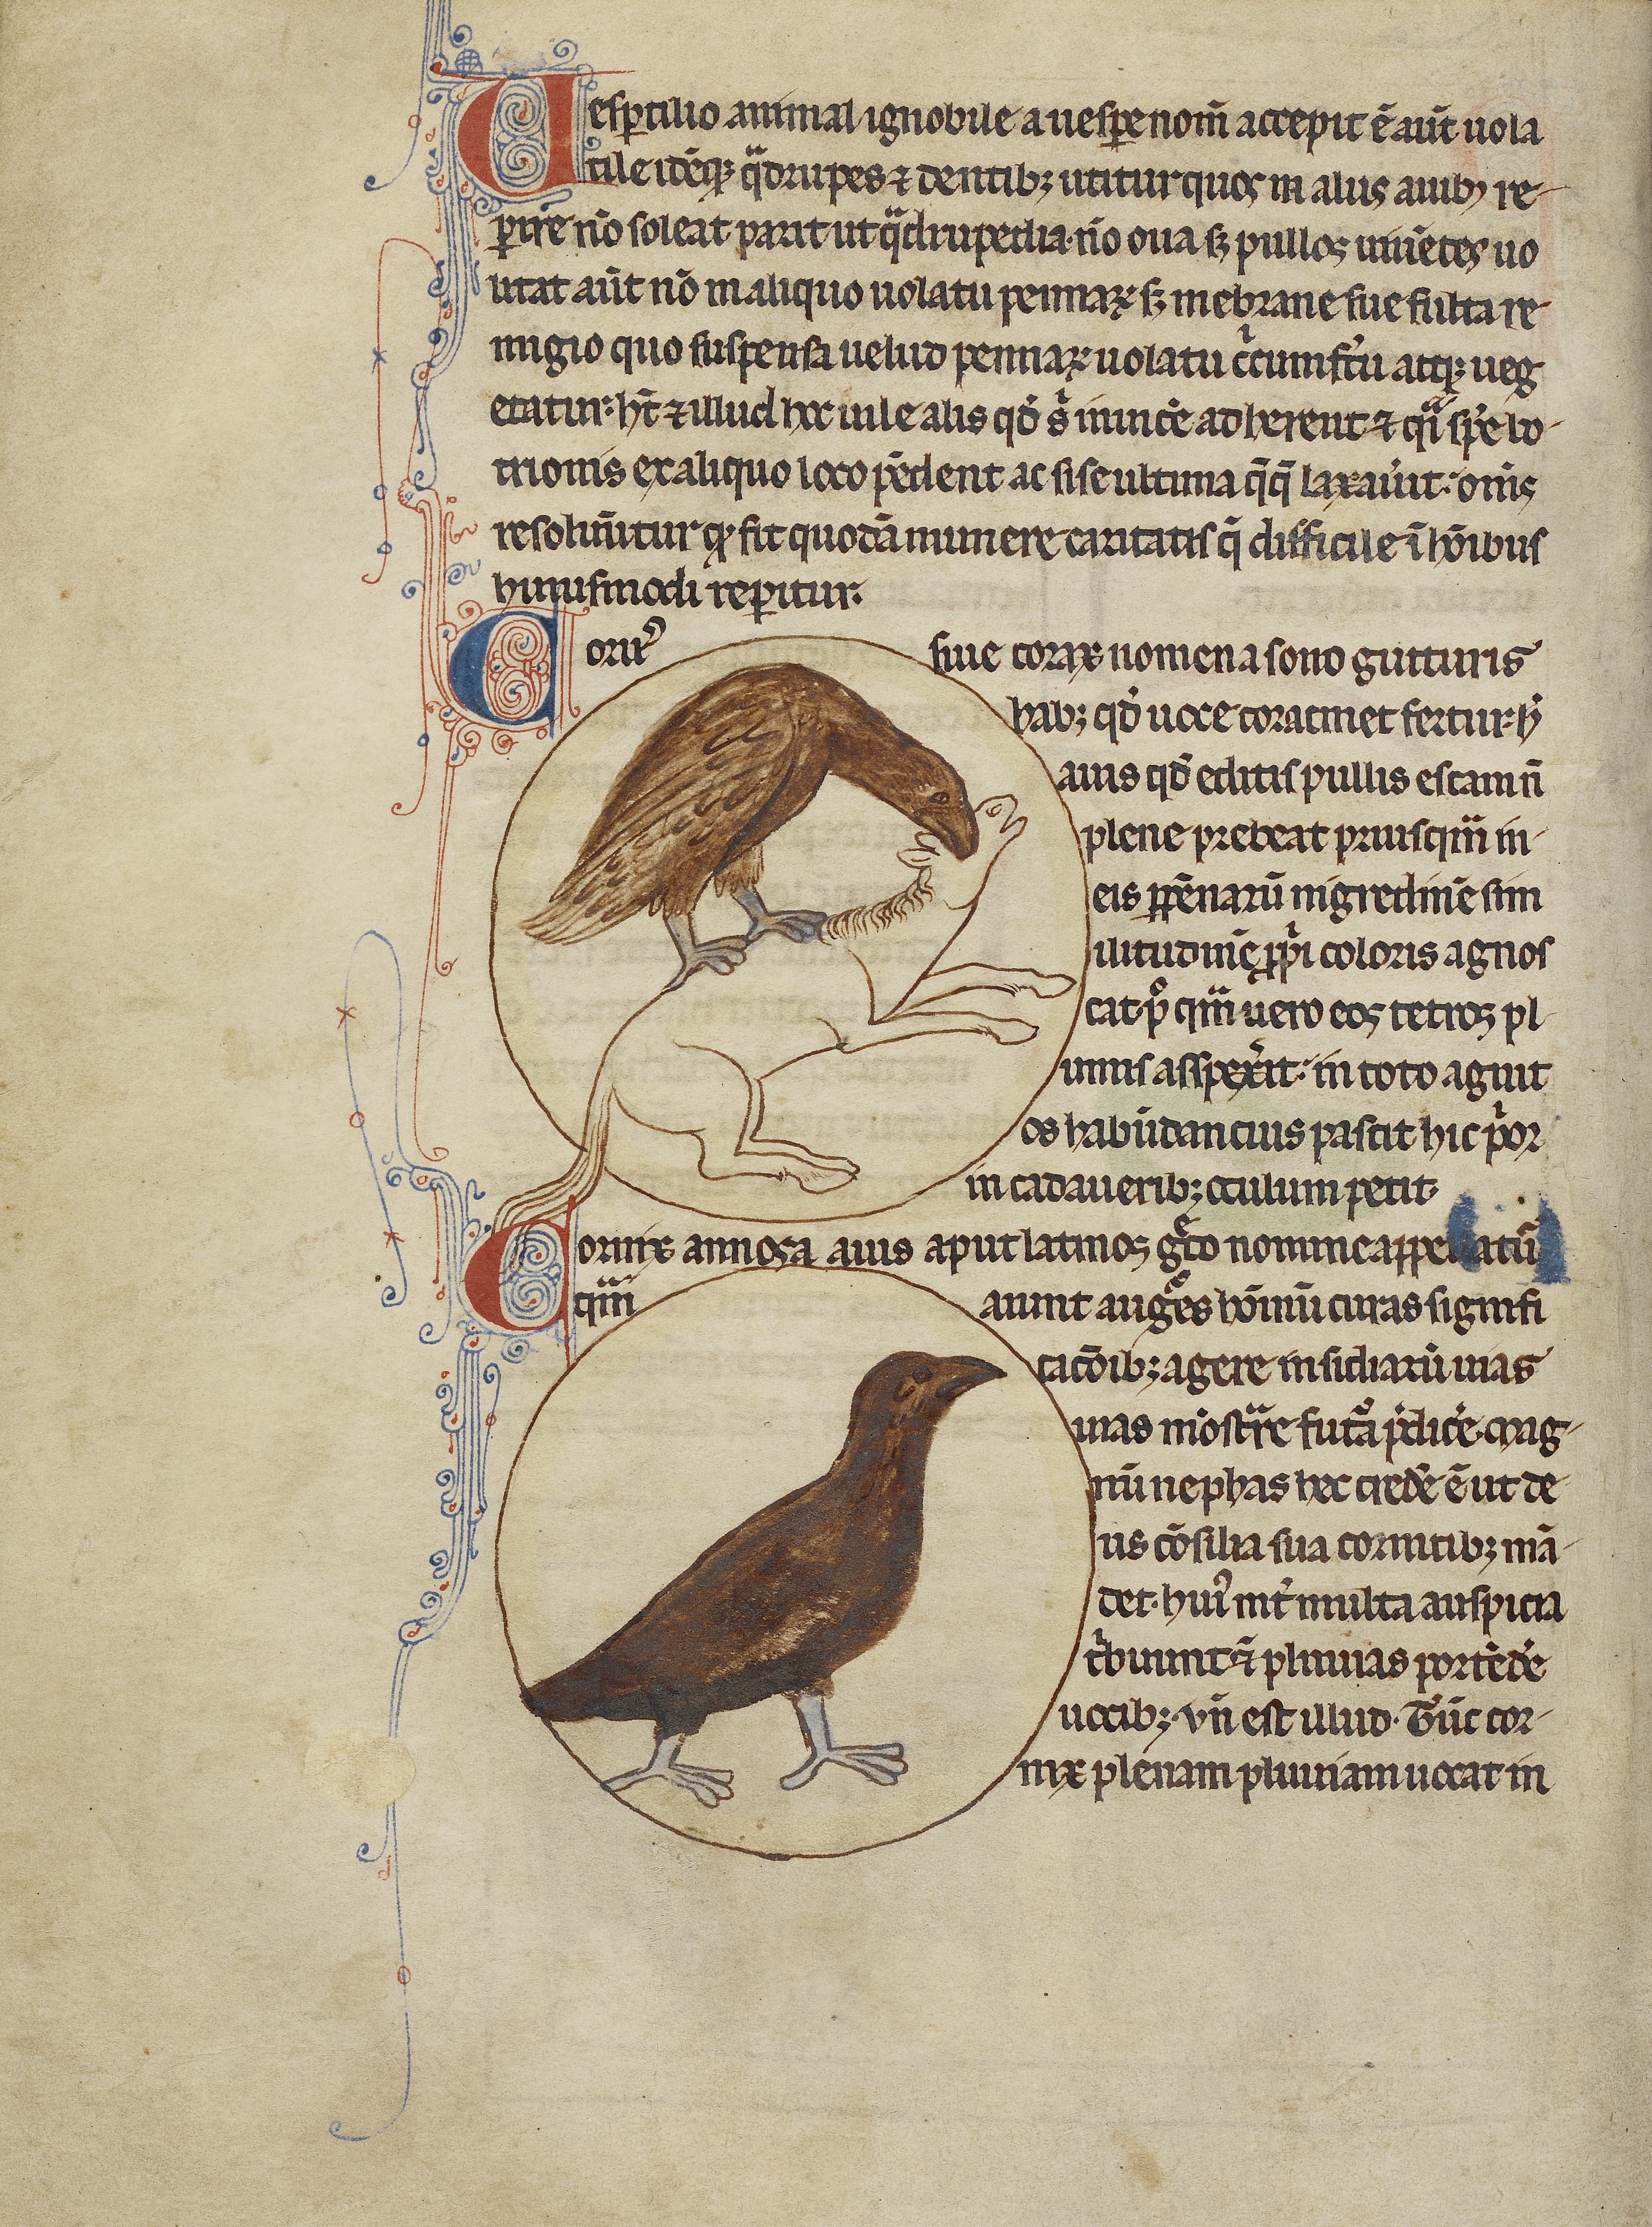 Vesꝑtilio animal ignobile a uesꝑe nom̄ accepit ē aūt uola
tile idēqꝫ qͣdrupes ⁊ dentibꝫ utitur quos in aliis auibꝫ re-
ꝑire nō soleat parit ut qͣdrupedia· nō oua sꝫ pullos uiuētes uo
litat aūt nō in aliquo uolatu pennaꝝ sꝫ mēbrane sue fulta re-
migio quo suspensa uelud pennaꝝ uolatu cͥcumfert̉ atqꝫ ueg
etatur· hn̄t ⁊ illud hec uile alis qd̉ sͥ inuicē adherent ⁊ qͣi spē bo-
trionis ex aliquo loco pēdent ac si se ultima q̄q̄ laxau̓it· om̄s
resoluūtur qꝫ fit quodā munere caritatis q̄ difficile ī hōibus
huiusmodi reꝑitur.
Coruꝰ siue corax nomen a sono gutturis
habꝫ qd̉ uoce coracinet fertur· h̓
auis qd̉ editis pullis escam n̄
plene prebeat priusqͣm in-
eis ꝑpēnarū nigredinē sim
ilitudinē ꝓpͥi coloris agnos
cat· pͦqͣm uero eos tetros pl
umis aspex̓it· in toto agnit
os habūdancius pascit hic pͥor
in cadaueribꝫ oculum petit·
Cornix annosa auis aput latinos gͤco nomine appellatū
qͣm aiunt augͦes hōinū curas signifi
cacōibꝫ agere insidiarū uias
uias mōstͣre futͣa p̓dic̓e. mag-
nū nephas hec cred̓e ē ut de-
us cōsilia sua cornicibꝫ mā-
det· huiꝰ int̓ multa auspicia
tͥbuunt ēt pluuias portēd̓e
uocibꝫ· vn̄ est illud· Tūc cor-
nix plenam pluuiam uocat in